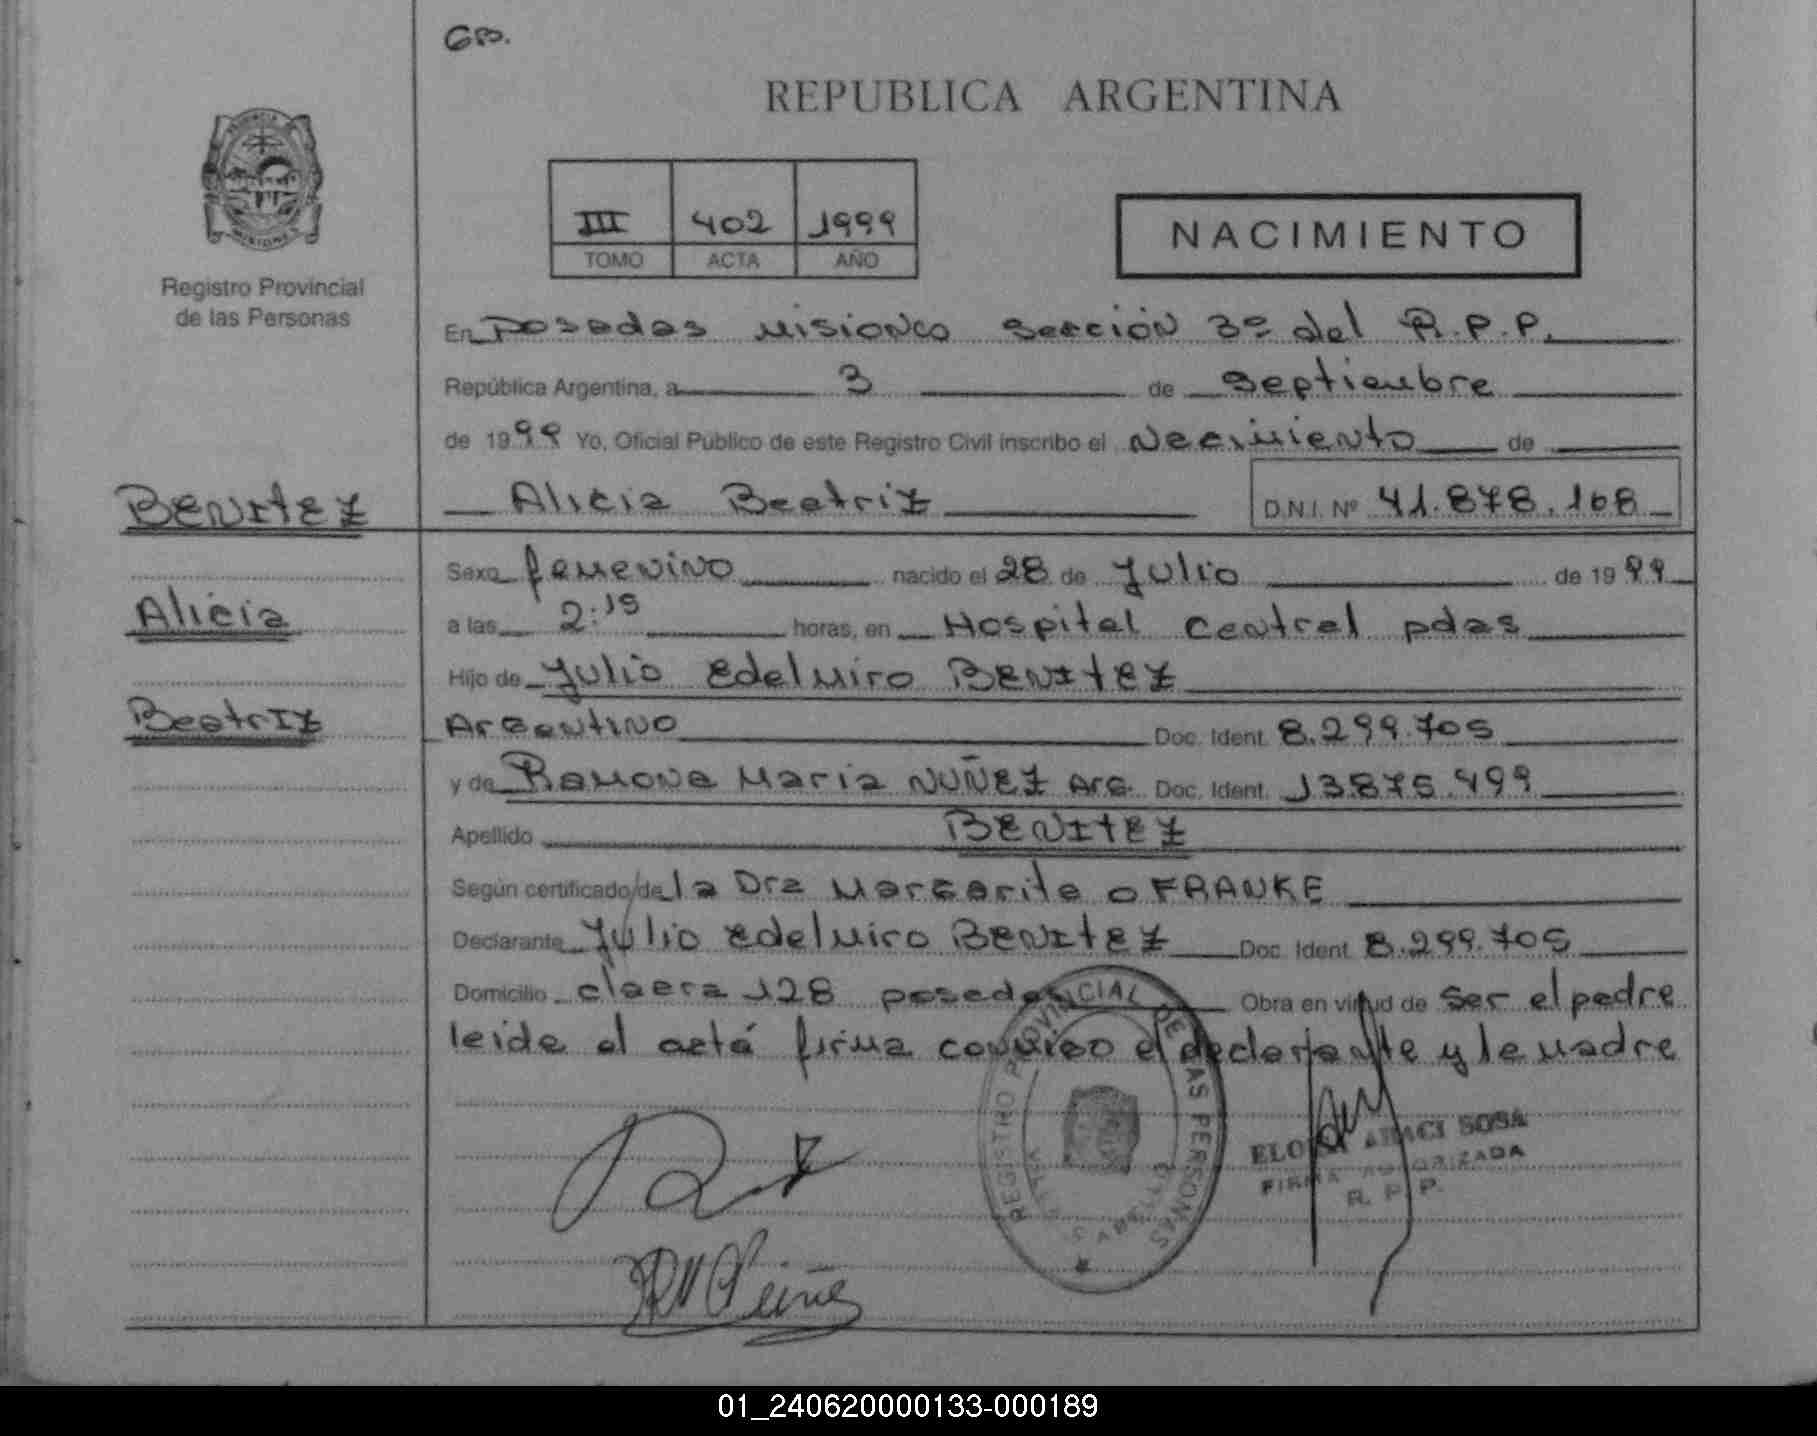 REPUBLICA ARGENTINA
III 402 1999
TOMO ACTA AÑO
NACIMIENTO
MISIONES
Registro Provincial
de las Personas
En Posadas Misiones Sección 3º del R.P.P.
República Argentina, a 3 de Septiembre
de 1999 Yo, Oficial Público de este Registro Civil inscribo el Nacimiento de
BENITEZ
Alicia Beatriz D.N.I. Nº 41.878.168
Sexo femenino nacido el 28 de Julio de 1999
Alicia
a las 2:15 horas, en Hospital Central pdas
Hijo de Julio Edelmiro BENITEZ
Beatriz
Argentino Doc. Ident. 8.299.705
y de Ramona Maria NUÑEZ Arg. Doc. Ident. 13.875.499
Apellido BENITEZ
Según certificado de la Dra Margarita O FRANKE
Declarante Julio Edelmiro BENITEZ Doc. Ident. 8.299.705
Domicilio 128 posadas Obra en virtud de ser el padre
leida el acta firma conmigo el declarante y la madre
REGISTRO PROVINCIAL DE LAS PERSONAS
SOSA
FIRMA AUTORIZADA
R. P. P.
01_240620000133-000189